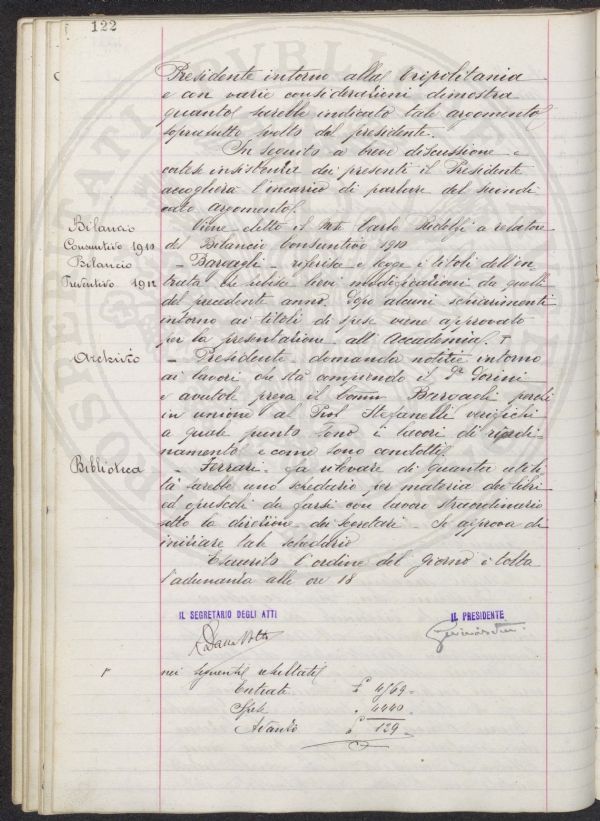 122
Presidente intorno alla Tripolitania
e con varie considerazioni dimostra
quanto sarebbe indicato tale argomento
soprattutto volto dal presidente.
In seguito a breve discussione e
cortese insistenza dei presenti il Presidente
accoglierà l'incarico di parlare del suindi
cato argomento.
Bilancio
Consuntivo 1910
Viene eletto il Carlo Ridolfi a relatore
del Bilancio Consuntivo 1910
Bilancio
Preventivo 1912
- Bargagli - riferisce e legge i titoli dell'en
trata che subisce lievi modificazioni da quelli
del precedente anno. Dopo alcuni schiarimenti
intorno ai titoli di spese viene approvato
per la presentazione all'Accademia.
Archivio
- Presidente domanda notizie intorno
ai lavori che sta compiendo il Dr Gorini
e avutole prega il Comm Bargagli perchè
in unione al Prof. Stefanelli verifichi
a quale punto sono i lavori di riordi-
namento e come sono condotti.
Biblioteca
- Ferrari - fa rilevare di quanta utili
tà sarebbe uno schedario per materia dei libri
ed opuscoli da farsi con lavoro straordinario
sotto la direzione dei Secretari - Si approva di
iniziare tale schedario
Esaurito l'ordine del giorno è tolta
l'adunanza alle ore 18
IL SEGRETARIO DEGLI ATTI
IL PRESIDENTE
nei seguenti resultati
Entrate £ 4569 -
Spese " 4440 -
Avanzo £ 129 -